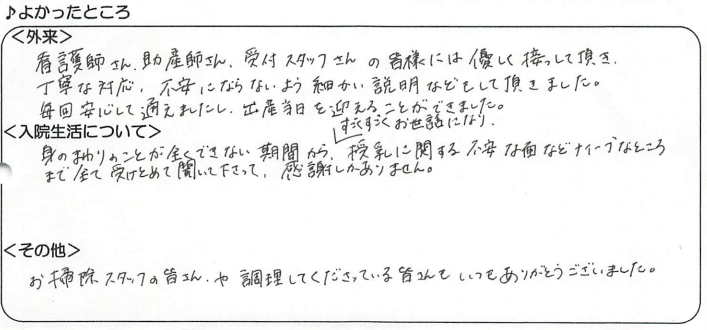 ♪よかったところ
＜外来＞
看護師さん、助産師さん、受付スタッフさんの皆様には優しく接して頂き、
丁寧な対応、不安にならないよう細かい説明などをして頂きました。
毎回安心して通えましたし、出産当日を迎えることができました。
＜入院生活について＞
すごくすごくお世話になり、
身のまわりのことが全くできない期間から、授乳に関する不安な面などナイーブなところ
まで全て受けとめて聞いて下さって、感謝しかありません。
＜その他＞
お掃除スタッフの皆さん、や調理してくださっている皆さんもいつもありがとうございました。